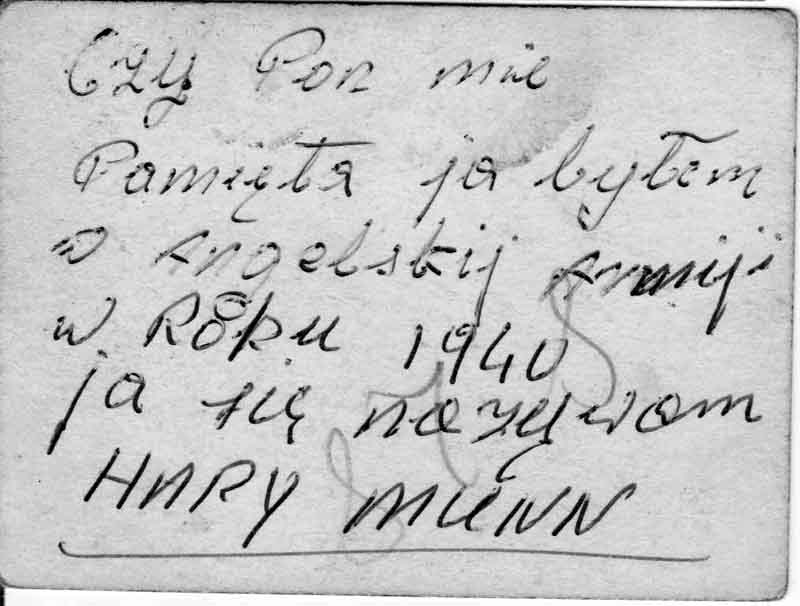 Czy Pan mie
Pamięta ja byłem
w Angelskij Armiji
w Roku 1940
ja się nazywam
HARY MUNN